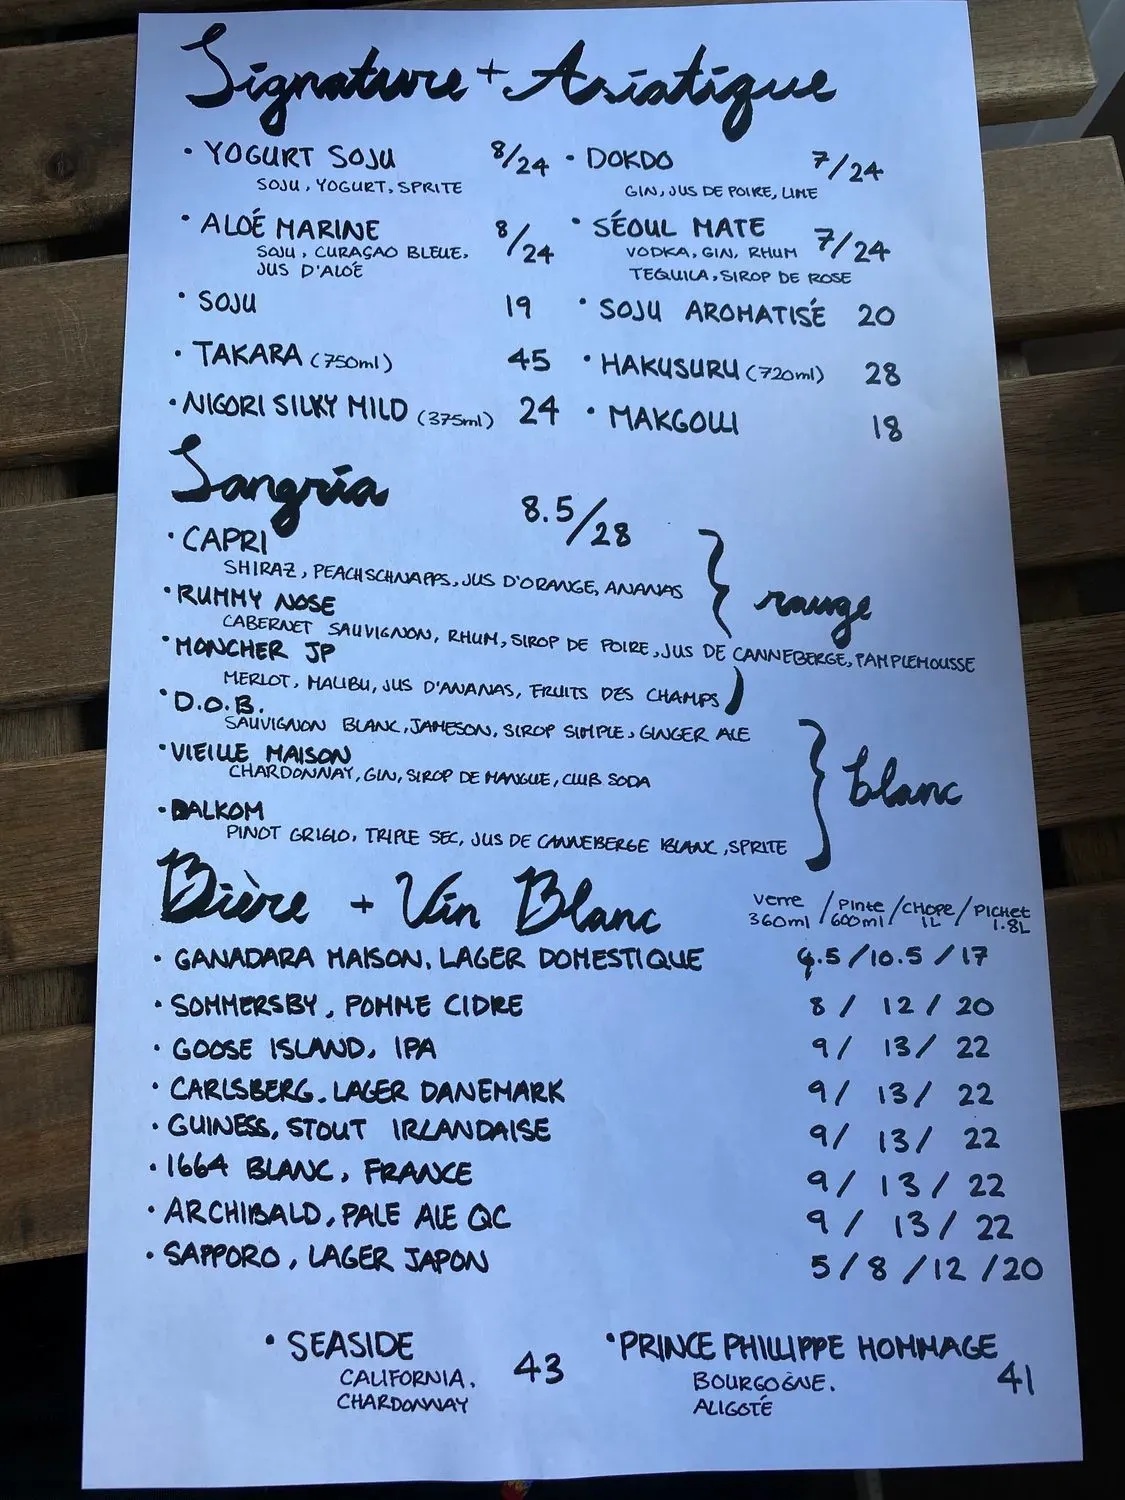 Signature + Asiatique
· YOGURT SOJU 8/24
SOJU, YOGURT, SPRITE
· DOKDO 7/24
GIN, JUS DE POIRE, LIME
· ALOÉ MARINE 8/24
SOJU, CURAÇAO BLEUE,
JUS D'ALOÉ
· SÉOUL MATE 7/24
VODKA, GIN, RHUM
TEQUILA, SIROP DE ROSE
· SOJU 19
· SOJU AROMATISÉ 20
· TAKARA (750ml) 45
· HAKUSURU (720ml) 28
· NIGORI SILKY MILD (375ml) 24
· MAKGOLLI 18
Sangria 8.5/28
· CAPRI
SHIRAZ, PEACHSCHNAPPS, JUS D'ORANGE, ANANAS
rouge
· RUMMY NOSE
CABERNET SAUVIGNON, RHUM, SIROP DE POIRE, JUS DE CANNEBERGE, PAMPLEMOUSSE
· MONCHER JP
MERLOT, MALIBU, JUS D'ANANAS, FRUITS DES CHAMPS
· D.O.B.
SAUVIGNON BLANC, JAMESON, SIROP SIMPLE, GINGER ALE
· VIEILLE MAISON
CHARDONNAY, GIN, SIROP DE MANGUE, CLUB SODA
blanc
· DALKOM
PINOT GRIGIO, TRIPLE SEC, JUS DE CANNEBERGE BLANC, SPRITE
Bière + Vin Blanc
verre / Pinte / CHOPE / PICHET
360ml 600ml 1L 1.8L
· GANADARA MAISON, LAGER DOMESTIQUE 6.5 / 10.5 / 17
· SOMMERSBY, POMME CIDRE 8 / 12 / 20
· GOOSE ISLAND, IPA 9 / 13 / 22
· CARLSBERG, LAGER DANEMARK 9 / 13 / 22
· GUINESS, STOUT IRLANDAISE 9 / 13 / 22
· 1664 BLANC, FRANCE 9 / 13 / 22
· ARCHIBALD, PALE ALE QC 9 / 13 / 22
· SAPPORO, LAGER JAPON 5 / 8 / 12 / 20
· SEASIDE 43
CALIFORNIA,
CHARDONNAY
· PRINCE PHILLIPPE HOMMAGE 41
BOURGOGNE,
ALIGOTÉ